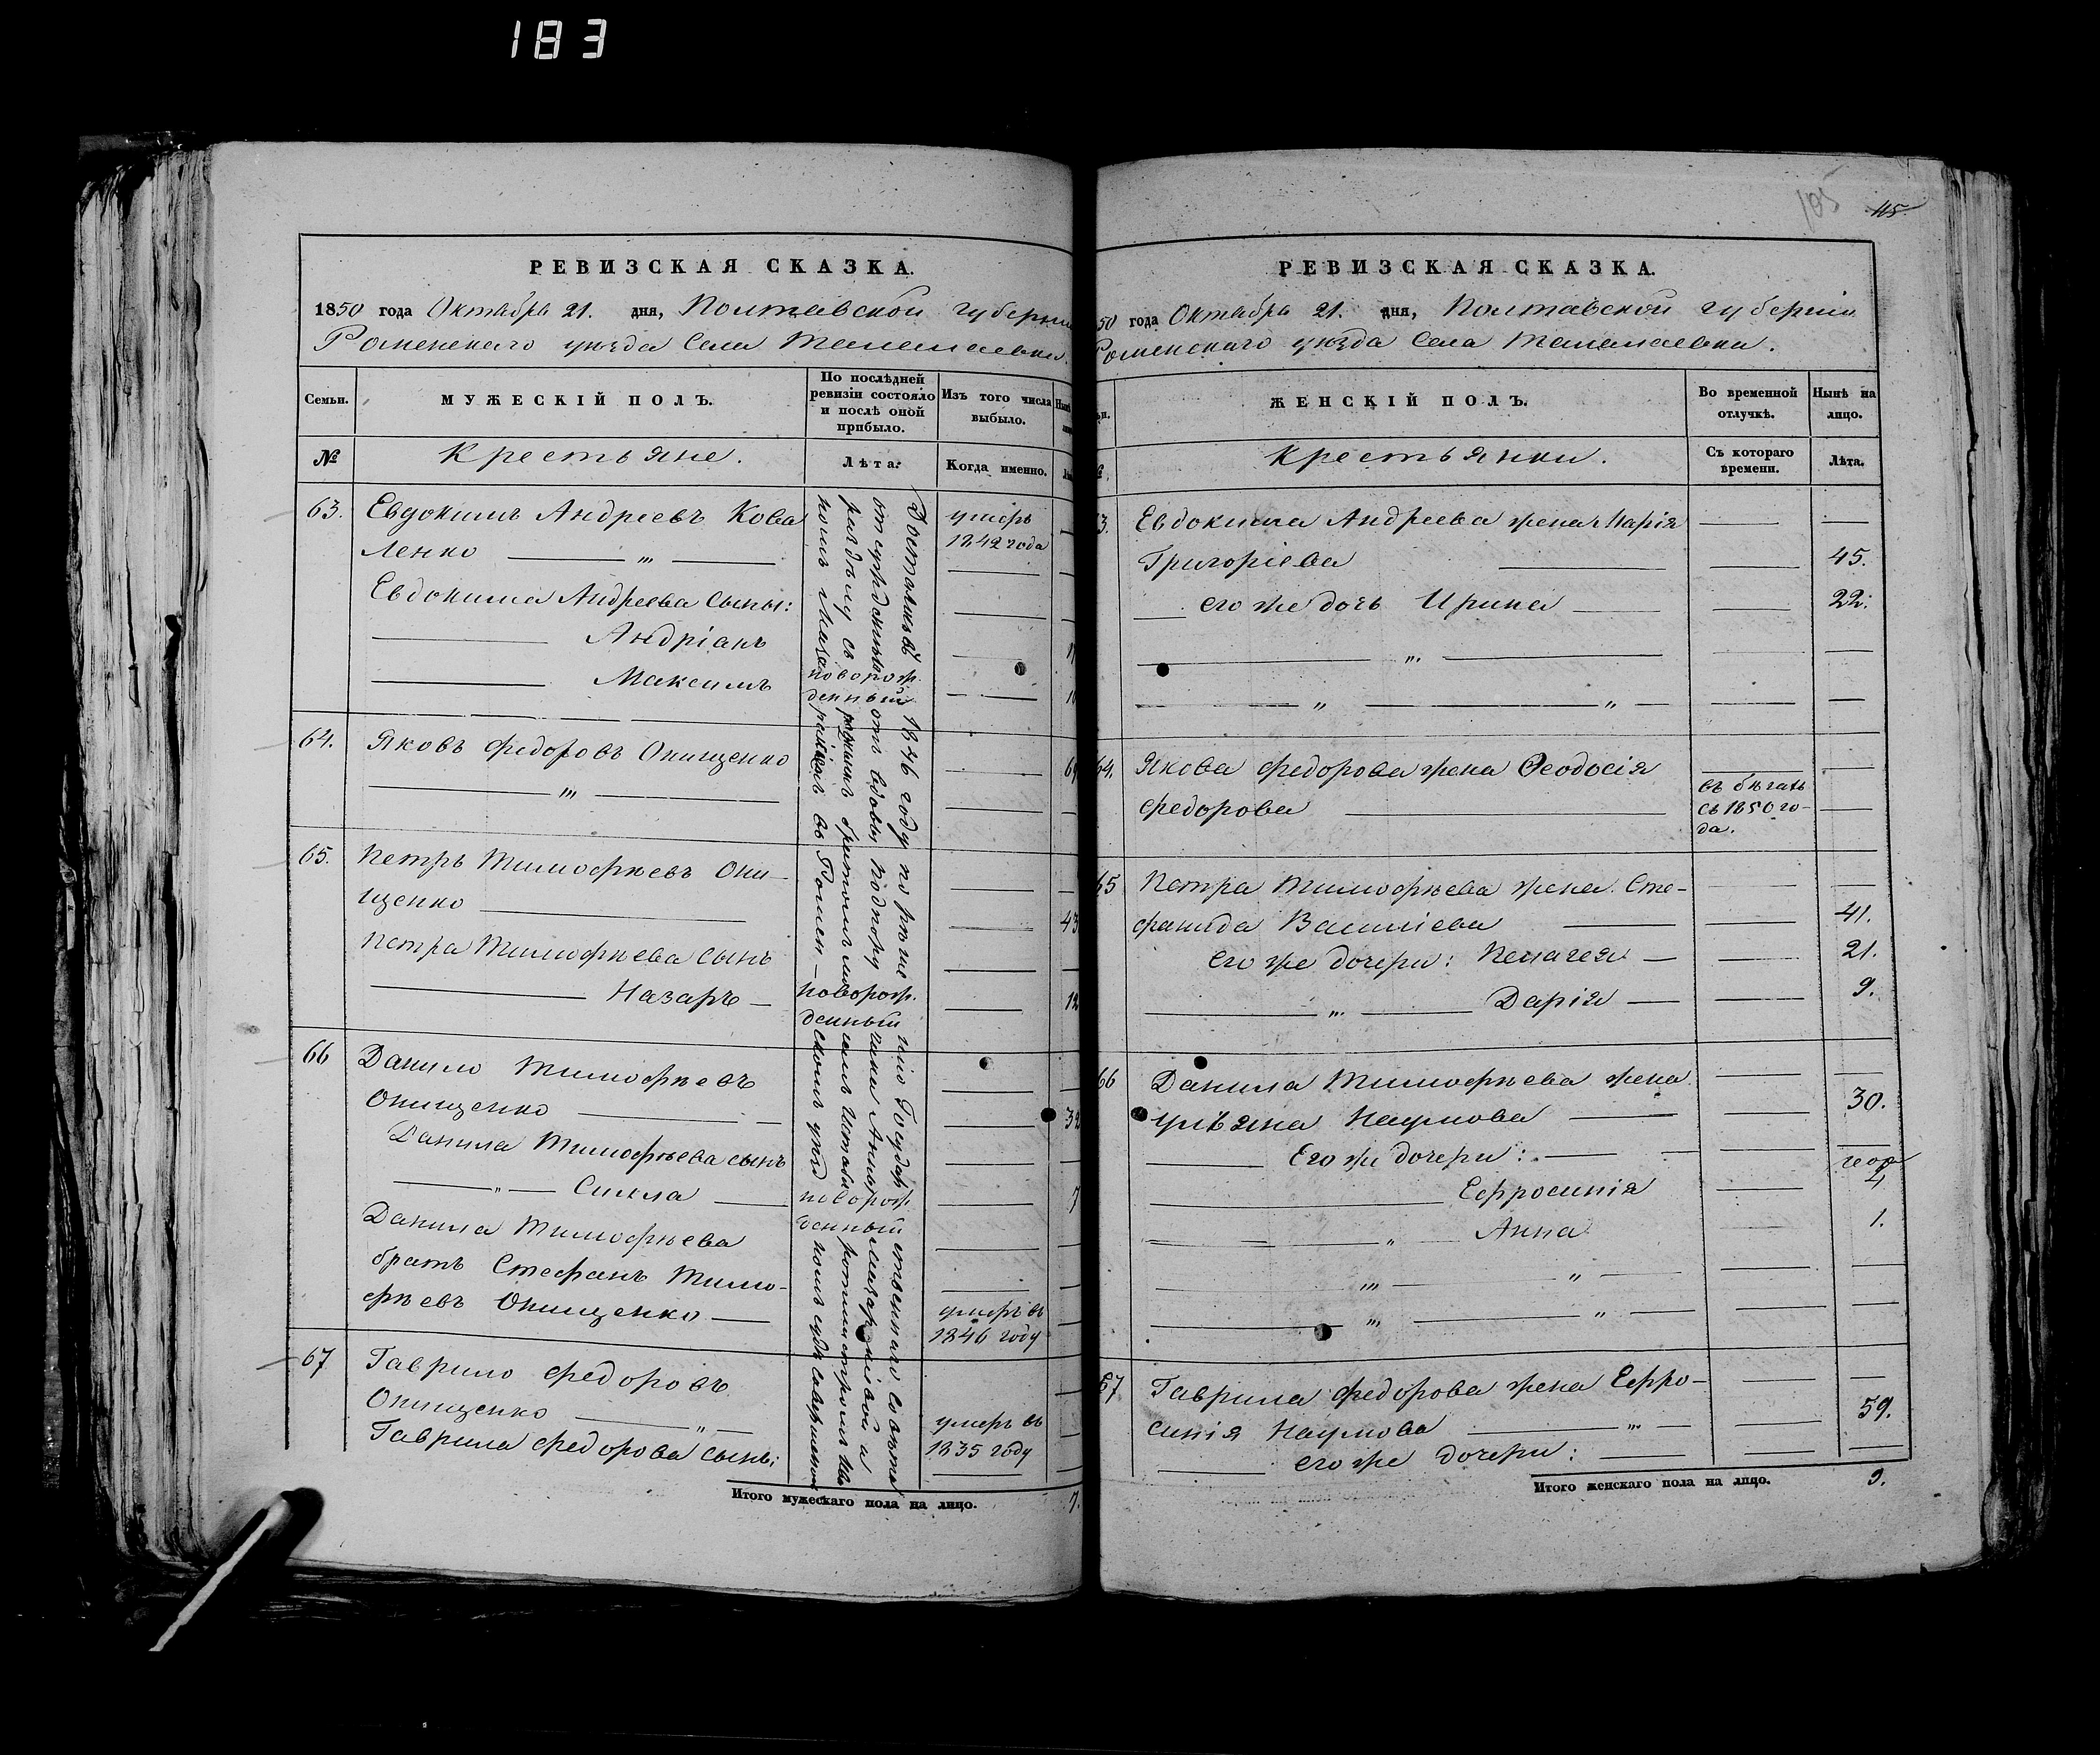 183
РЕВИЗСКАЯ СКАЗКА.
1850 года Октября 21. дня, Полтавской губерніи
Роменскаго уѣзда Села Талалаевки.
Семьи.
МУЖЕСКІЙ ПОЛЪ.
По послѣдней ревизіи состояло и послѣ оной прибыло.
Изъ того числа выбыло.
№
Крестьяне.
Лѣта.
Когда именно.
63. Евдокимъ Андреевъ Кова
ленко
умеръ
1842 года
Евдокима Андреева сыны:
Андріанъ
Максимъ
новорож
денный
64. Яковъ Федоровъ Онищенко
65. Петръ Тимофѣевъ Они-
щенко
43
Петра Тимофѣева сынъ
Назаръ
новорож.
денный
12
66 Данило Тимофѣевъ
Онищенко
32
Данила Тимофѣева сынъ
новорож
денный
7
Данила Тимофѣева
братъ Стефанъ Тимо-
фѣевъ Онищенко
умеръ въ
1846 году
67 Гаврило Федоровъ
Онищенко
умеръ въ
1835 году
Гаврила Федорова сынъ:
Итого мужескаго пола на лицо.
7.
Доставшій 1846 году по рѣше нію Государ ственнаго Совѣта
105
115
РЕВИЗСКАЯ СКАЗКА.
50 года Октября 21. дня, Полтавской губерніи
Роменскаго уѣзда Села Талалаевки.
ЖЕНСКІЙ ПОЛЪ.
Во временной отлучкѣ.
Нынѣ на лицо.
Крестьянки.
Съ котораго времени.
Лѣта.
3. Евдокима Андреева жена Марія
Григоріева
45.
его же дочь Ирина
22.
64. Якова Федорова жена Ѳеодосія
Федорова
въ бѣгахъ
съ 1850 го-
да.
65 Петра Тимофѣева жена Сте-
фанида Василіева
41.
его же дочери: Пелагея
21.
Дарія
9.
66 Данила Тимофѣева жена
Ульяна Наумова
30.
Его же дочери:
Ефросинія
4
Анна
1.
67 Гаврила Федорова жена Ефро-
синія Наумова
59.
его же дочери:
Итого женскаго пола на лицо.
9.